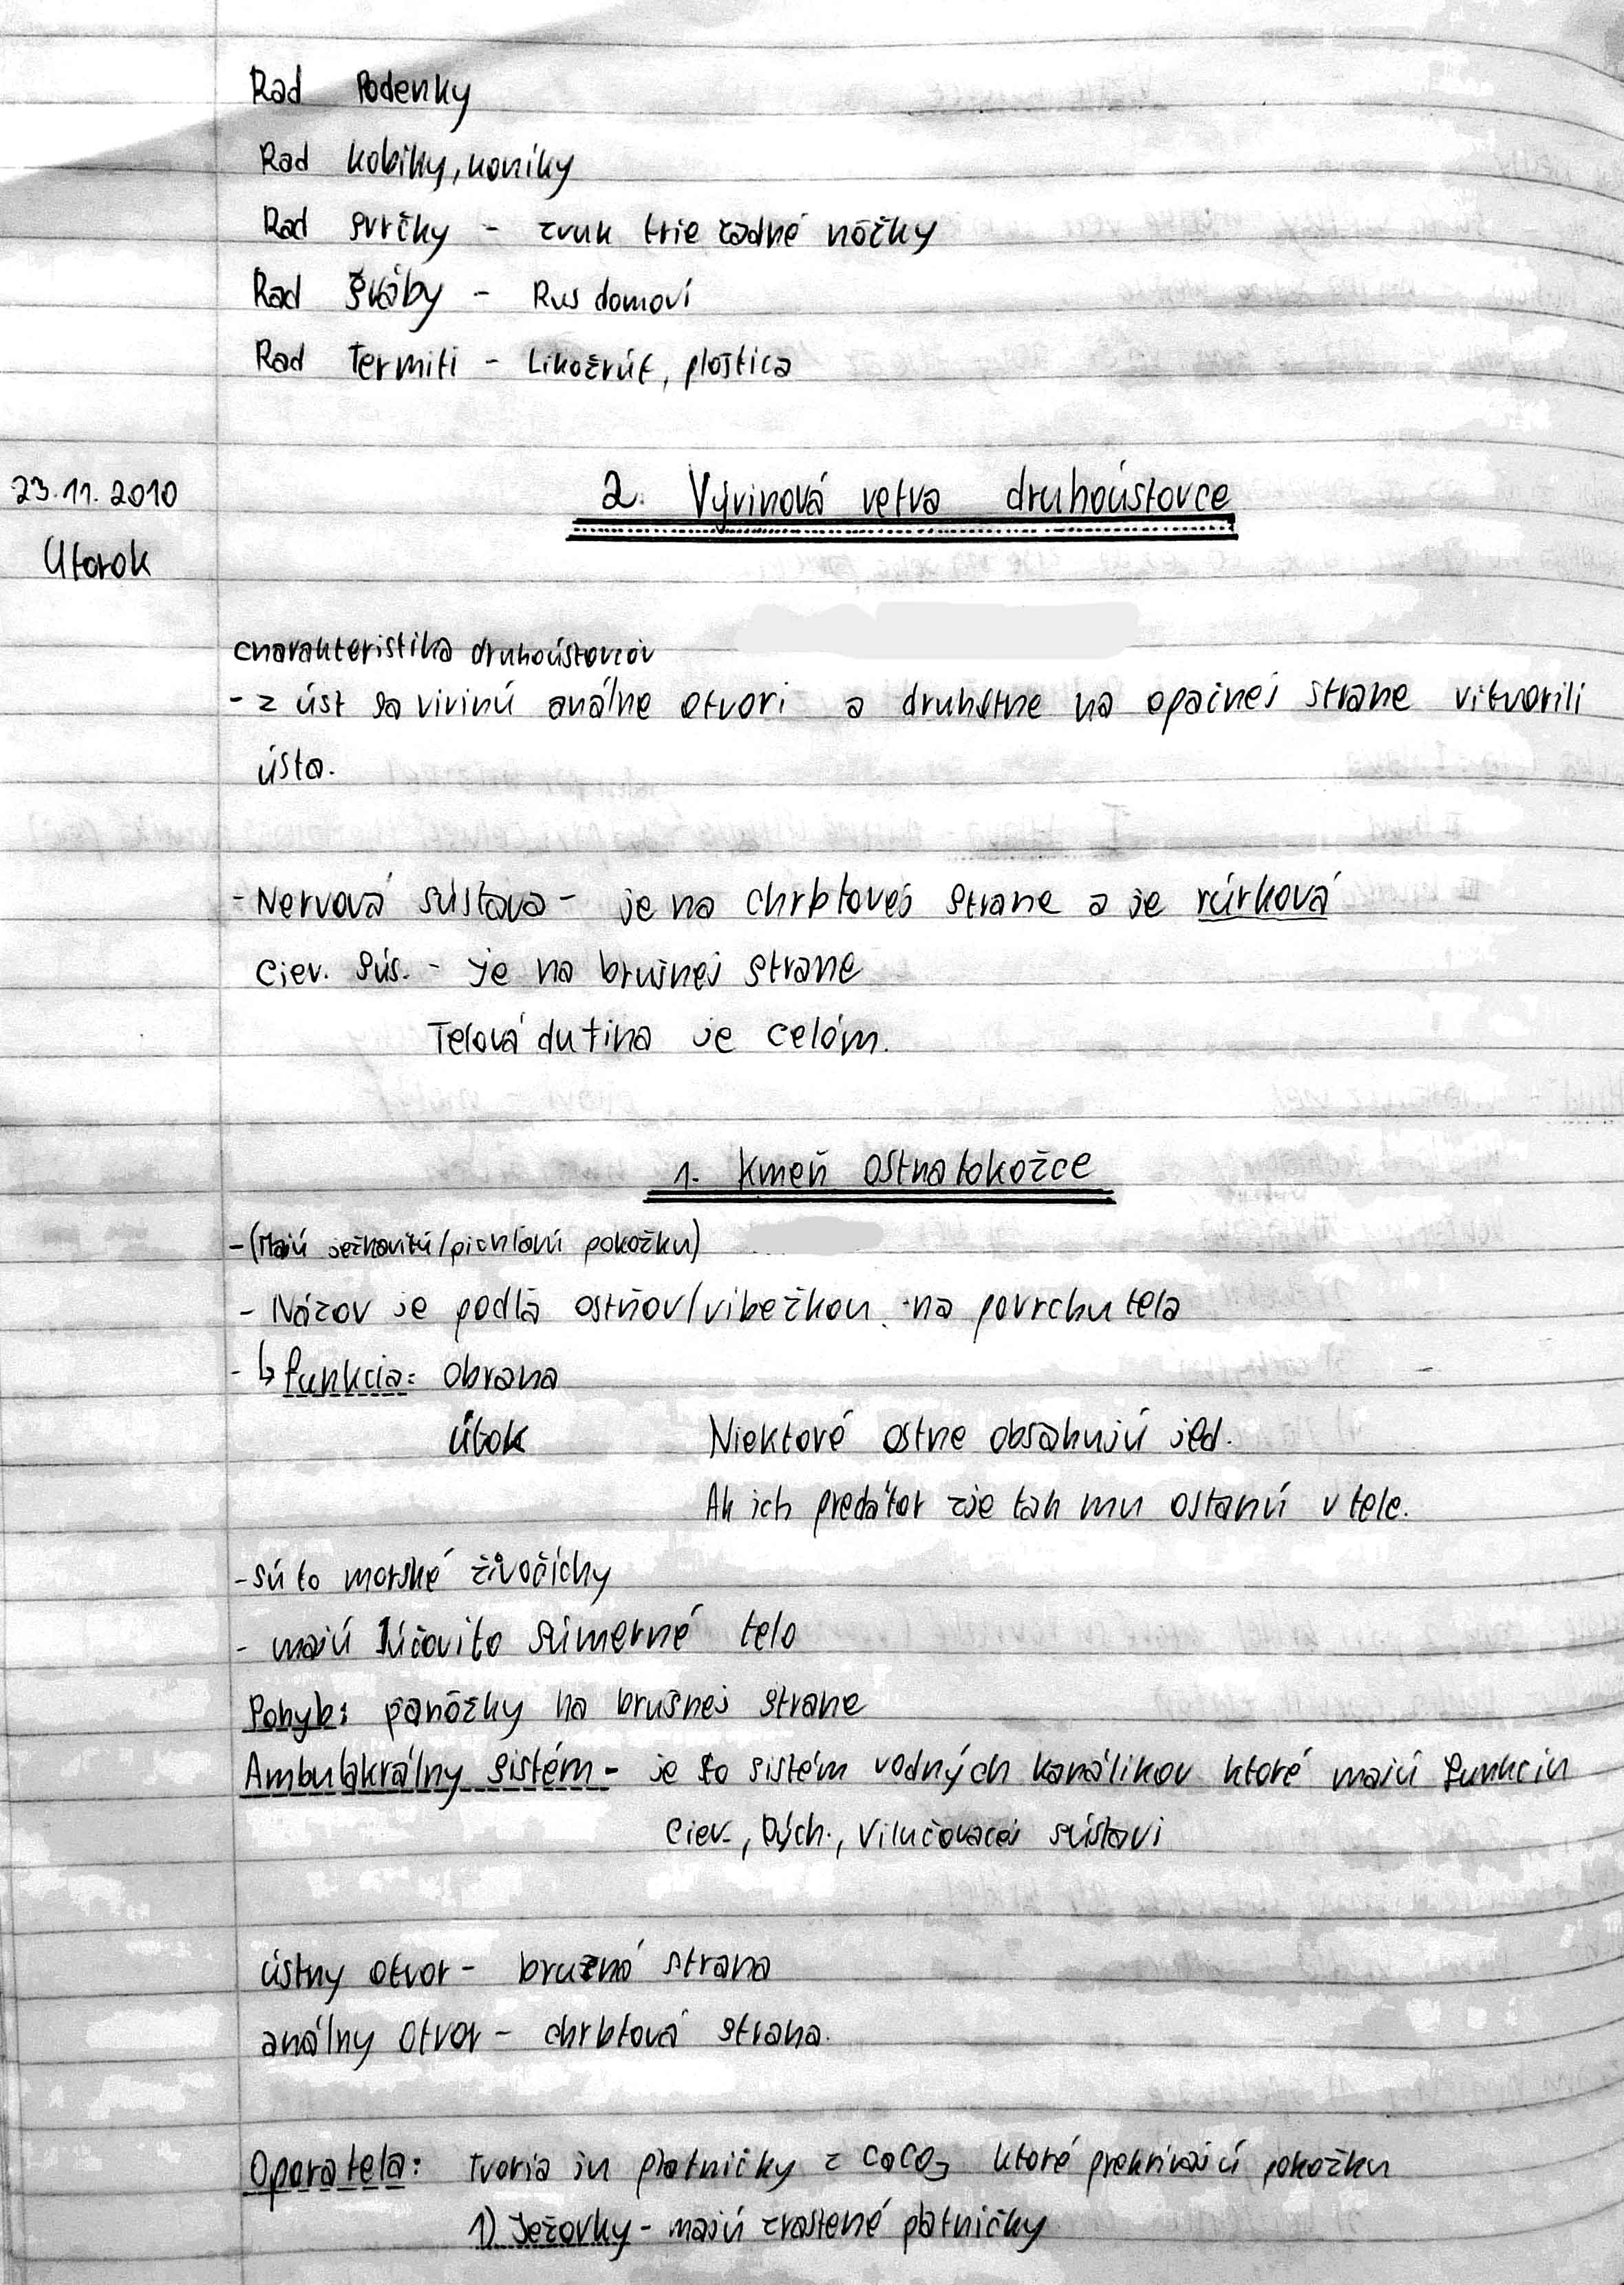 Rad Podenky
Rad kobilky, koníky
Rad svrčky - zvuk trie zadné nôžky
Rad šváby - Rus domoví
Rad Termiti - Likožrút, ploštica
23.11.2010
Utorok
2. Vývinová vetva druhoústovce
charakteristika druhoústovcov
- z úst sa vivinú análne otvori a druhotne na opačnej strane vitvorili
ústa.
- Nervová sústava - je na chrbtovej strane a je rúrková
Ciev. sús. - je na brušnej strane
Telová dutina je celóm.
1. Kmeň ostnatokožce
- (Majú ježkovitú/pichlavú pokožku)
- Názov je podľa ostňov/vibežkou na povrchu tela
- ↳ funkcia: obrana
útok Niektoré ostne obsahujú jed.
Ak ich predátor zje tak mu ostanú v tele.
- sú to morské živočíchy
- majú lúčovito súmerné telo
Pohyb: panôžky na brušnej strane
Ambulakrálny sistém - je to sistém vodných kanálikov ktoré majú funkciu
Ciev., Dých., Vilučovacej sústavi
ústny otvor - brušná strana
análny otvor - chrbtová strana.
Opora tela: tvoria ju platničky z CaCO₃ ktoré prekrívajú pokožku
1) Ježovky - majú zrastené platničky